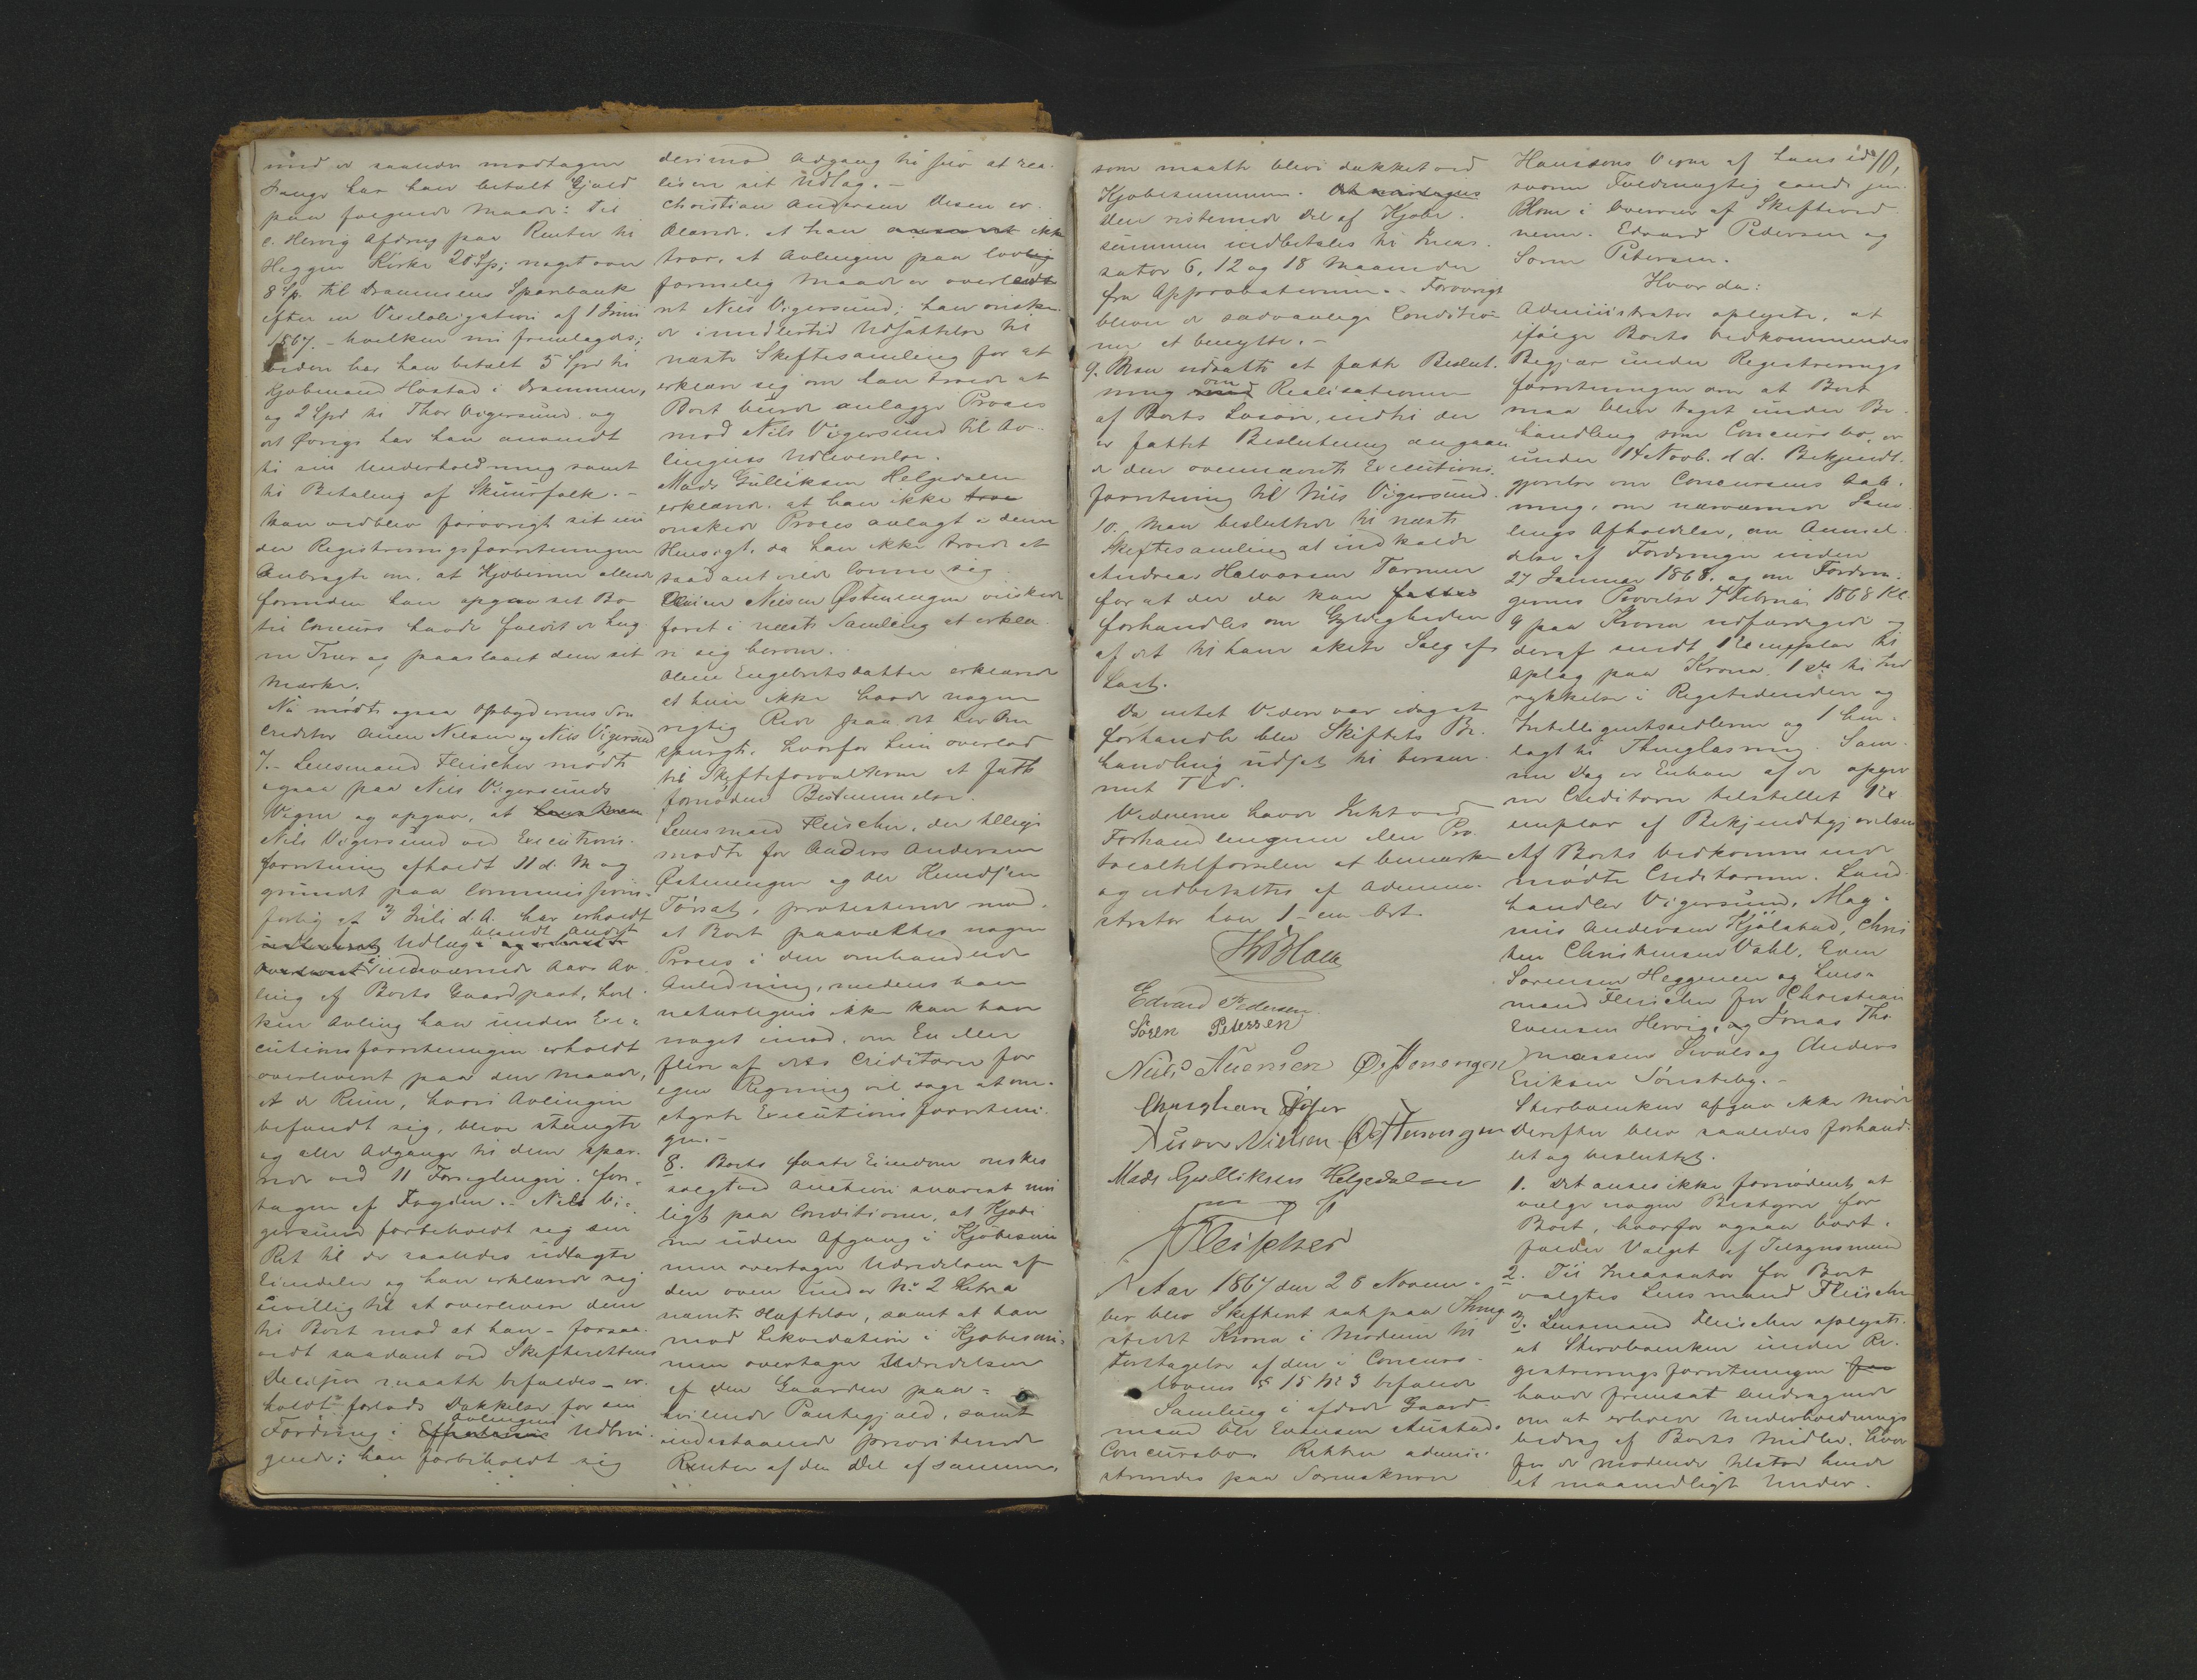 med er saaledes modtagne
Penge har han betalt Gjæld
paa følgende Maade: til
C. Hervig Afdrag paa Renter til
Heggen Kirke 20 Sp; noget over
8 Sp. til Drammens Sparebank
efter en Vexelobligation af 1 Juni
1867. - hvilken nu fremlagdes;
videre har han betalt 5 Spd til
Kjøbmand Hostad i Drammen,
og 2 Spd til Thor Vigersund og
det Øvrige har han anvendt
til sin Underholdning samt
til Betaling af Skuurfolk. -
Han vedblev forøvrigt sit un
der Registreringsforretningen
Anbragte om, at Kjøberne allerede
forinden han opgav sit Bo
til Concurs havde fældet og hug
ne Træer og paaslaaet dem sit
Mærke.
Nu mødte ogsaa Opbyderens Søn
Creditor Auen Nielsen og Nils Vigersund
7. - Lensmand Fleischer mødte
ogsaa paa Nils Vigersunds
Vegne og opgav, at
Nils Vigersund ved Executions-
forretning afholdt 11 d. M og
grundet paa Commissions-
forlig af 3 Juli d. A. har erholdt
blandt Andet
Udlæg i
indeværende Aars Av
ling af Boets Gaardpart, hvil
ken Avling han under Exe-
cutionsforretningen erholdt
overleveret paa den Maade,
at de Rum, hvori Avlingen
befandt sig, bleve stængte
og alle Adgange til dem spær
rede ved 11 Forseglinger, fore
tagne af Fogden. - Nils Vi-
gersund forbeholdt sig sin
Ret til de saaledes udlagte
Eiendele og han erklærede sig
uvillig til at overlevere dem
til Boet mod at han - forsaa-
vidt saadant ved Skifterettens
Decision maatte befales - er-
holdt forlods Dækkelse for sin
Avlingens
Fordring i Udbrin
gende; han forbeholdt sig
derimod Adgang til selv at rea-
lisere sit Udlæg. -
Christian Andersen Disen er-
klærede, at han ikke
troer, at Avlingen paa lovlig
formelig Maade er overleve
ret Nils Vigersund; han ønske
de imidlertid Udsættelse til
næste Skiftesamling for at
erklære sig om han troede at
Boet burde anlægge Proces
mod Nils Vigersund til Av-
lingens Udleverelse.
Mads Gulliksen Helgedalen
erklærede, at han ikke
ønskede Proces anlagt i denne
Hensigt, da han ikke troede at
saadant vilde lønne sig
Auen Nielsen Østenengen ønskede
først i næste Samling at erklæ
re sig herom.
Olene Engebretsdatter erklærede
at hun ikke havde nogen
rigtig Rede paa det her Om
spurgte, hvorfor hun overlod
til Skifteforvalteren at fatte
fornøden Bestemmelse.
Lensmand Fleischer, der tillige
mødte for Anders Andersen
Østenengen og Ole Knudsen
protesterede mod,
at Boet paavæltes nogen
Proces i den omhandlede
Anledning, medens han
naturligviis ikke kan have
noget imod, om En eller
flere af dets Creditorer for
egen Regning vil søge at om-
støde Executionsforretnin-
gen. -
8. Boets faste Eiendom ønskes
solgt ved Auction snarest mu
ligt paa Conditioner, at Kjøbe
ren uden Afgang i Kjøbesum
men overtager Udredelsen af
den oven under No 2 Litra
nævnte Hæftelse, samt at han
mod Likvidation i Kjøbesum-
men overtager Udredelsen
af den Gaarden paa-
hvilende Pantegjæld, samt
indestaaende prioriterede
Renter af den Del af samme,
som maatte blive dækket ved
Kjøbesummen.
Den resterende Del af Kjøbe-
summen indbetales til Incas-
sator 6, 12 og 18 Maaneder
fra Approbationen. - Forøvrigt
bliver de sædvanlige Conditio
ner at benytte. -
9. Man udsatte at fatte Beslut-
om
ning Realisationen
af Boets Løsøre, indtil der
er fattet Beslutning angaaen
de den ovennævnte Executions-
forretning til Nils Vigersund.
10. Man besluttede til næste
Skiftesamling at indkalde
Andreas Halvorsen
for at der da kan
forhandles om Gyldigheden
af det til ham skete Salg af
Last.
Da intet Videre var idag at
forhandle blev Skiftets Be-
handling udsat til beram-
met Tid.
Vidnerne havde Intet ved
Forhandlingerne eller Pro-
tocoltilførselen at bemærke
og udbetaltes af Admini-
strator hver 1 - een Ort.
Edvard Pedersen.
Sören Petersen
Niels Auensen Østenengen
Auen Nielsen Østenengen
Mads Gulliksen Helgedalen
m p P
Fleischer
Aar 1867 den 28 Novem-
ber blev Skifteret sat paa Thing
stedet Krona i Modum til
Foretagelse af den i Concurs-
lovens § 15 No 3 befalede
Samling i afdøde Gaard-
mand Ole Evensen
Concursbo. Retten admini-
streredes paa Sorenskriver
10,
Hanssons Vegne af hans eds
svorne Fuldmægtig cand. jur.
Blom i Overvær af Skiftevid
nerne. Edvard Pedersen og
Søren Petersen.
Hvor da:
Administrator oplyste, at
ifølge Boets Vedkommendes
Begjær under Registrerings
forretningen om at Boet
maa blive taget under Be-
handling som Concursbo, er
under 14 Novb. d. A. Bekjendt-
gjørelse om Concursens Aab-
ning, om nærværende Sam-
lings Afholdelse, om Anmel-
delse af Fordringer inden
27 Januar 1868. og om Fordrin-
gernes Prøvelse 7 Februar 1868 Kl.
9 paa Krona udfærdiget og
deraf sendt 1 Exemplar til
Oplag paa Krona, 1 do til Ind
rykkelse i Rigstidenden og
Intelligentssedlerne og 1 hen-
lagt til Thinglæsning. Sam-
me Dag er Enhver af de opgiv
ne Creditorer tilstillet 1 Ex
emplar af Bekjendtgjørelsen
Af Boets Vedkommende
mødte Creditorerne. Land-
handler Vigersund, Mag-
nus Andersen Kjølstad, Chri
sten Christensen Vahl, Even
Sørensen Heggenen og Lens-
mand Fleischer for Christian
Evensen Hervig, og Jonas Tho
massen og Anders
Eriksen Sønsteby. -
Stervboenken afgav ikke Møde
Derefter blev saaledes forhand-
let og besluttet.
1. Det ansees ikke fornødent at
vælge nogen Bestyrer for
Boet, hvorfor ogsaa bort-
falder Valget af Tilsynsmænd
2. Til Incassator for Boet
valgtes Lensmand Fleischer
3. Lensmand Fleischer oplyste
at Stervboenken under Re-
gistreringsforretningen
havde fremsat Andragende
om at erholde Underholdnings
bidrag af Boets Midler, hvor
for de Mødende tilstod hende
et maanedligt Under-